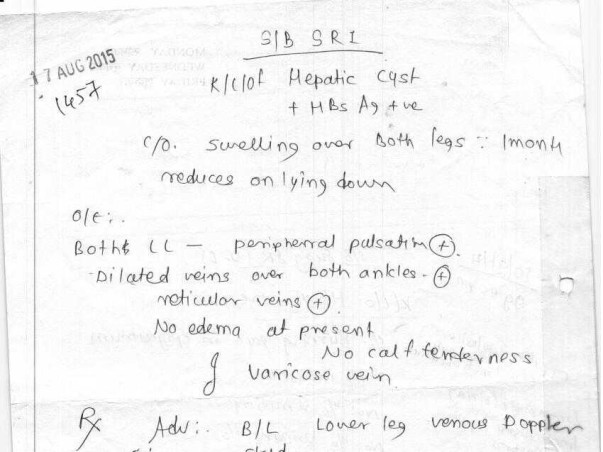 S/B SR1
17 AUG 2015
1457
K/C/Of Hepatic cyst
+ HBs Ag +ve
C/O. swelling over Both legs 1month
reduces on lying down
O/E:.
Both LL - peripherral pulsatin (+).
Dilated veins over both ankles - (+)
reticular veins (+).
No edema at present
No calf tenderness
varicose vein
Rx Adv:. B/L Lower leg venous Doppler